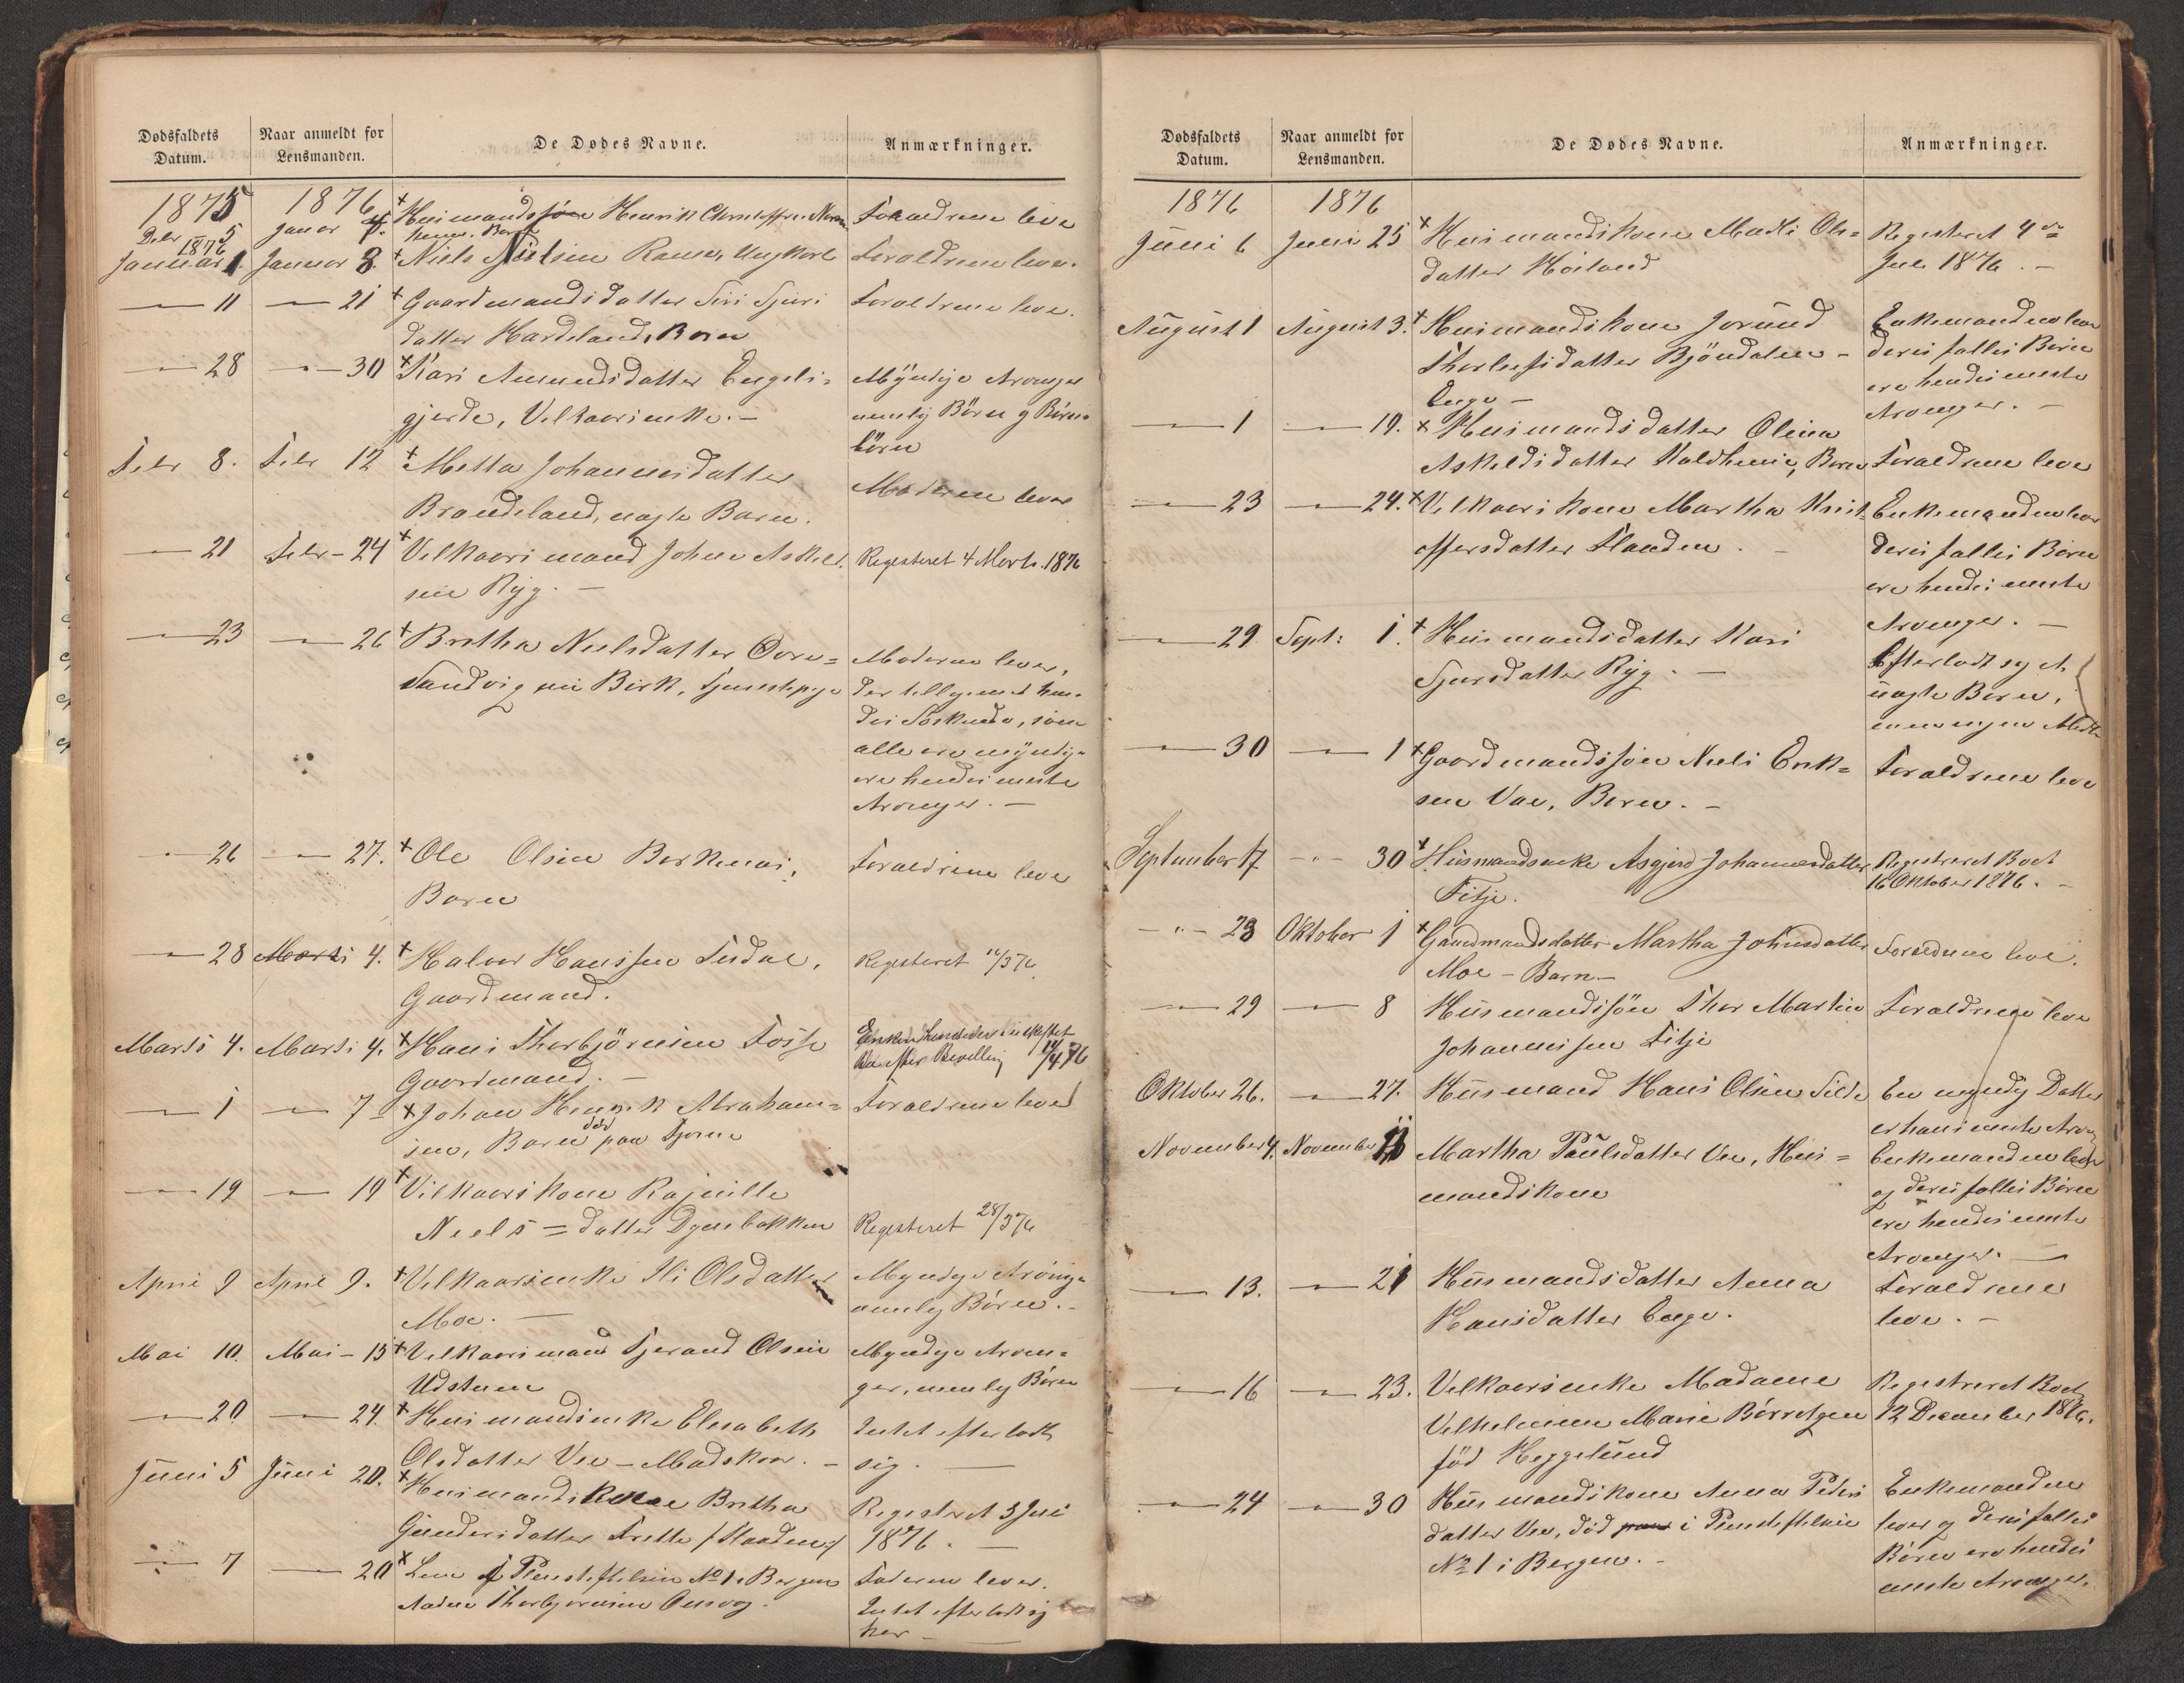 Dødsfaldets
Datum.
Naar anmeldt for
Lensmanden.
De Dødes Navne.
Anmærkninger.
1875
1876
Decbr 5
Januar 4.
+ Huusmandssøn Henrik
Barn
Forældrene leve
1876
Januar 1.
Januar 8.
+ Niels Nielsen Ramsø, Ungkarl
Forældrene leve.
— 11
— 21
+ Gaardmandsdatter Siri Sjurs
datter Hardeland, Barn
Forældrene leve.
— 28
— 30
+ Kari Amundsdatter Engels-
gjerde, Velkaarsenke. —
Myndige Arvinger
nemlig Børn og Børne-
børn
Febr 8.
Febr 12
+ Metta Johannesdatter
Brandeland, uægte Barn.
Moderen lever
— 21
Febr - 24
+ Velkaarsmand Johan Askild-
sen Ryg. —
Registeret 4 Marts 1876
— 23
— 26
+ Bretha Neelsdatter Øvre-
Sandvig Birk, Tjenestepige
Moderen lever,
der tilligemed hen-
des Søskende, som
alle ere myndige
ere hendes næste
Arvinger. —
— 26
— 27.
+ Ole Olsen Birkenæs,
Barn
Forældrene leve
— 28
Marts 4.
+ Halvor Hanssen Indal,
Gaardmand.
Registeret 14/3 76.
Marts 4.
Marts 4.
+ Hans Thorbjørnsen Fosse
Gaardmand. —
Enken
efter Bevilling 14/4 76
— 1
— 7
+ Johan Henrik Abraham-
sen, Barn død paa Tjorne
Forældrene lever
— 19
— 19
+ Velkaarskone Ragnille
Neels = datter Dynebakken
Registeret 28/3 76
April 9
April 9.
+ Velkaarsenke Ili Olsdatter
Moe. —
Myndige Arvinger
nemlig Børn. —
Mai 10.
Mai - 15
+ Velkaarsmand Tjerand Olsen
Udstuen
Myndige Arvin-
ger, nemlig Børn
— 20
— 24.
+ Huusmandsenke Elisabeth
Olsdatter Vee - Madskaar. -
Intet efterladt
sig. —
Juni 5
Juni 20.
+ Huusmandskone Bretha
Gundersdatter Frette /Haaden/
Registeret 3 Juli
1876. —
— 7
— 20
+ Lem af Pleiestiftelsen No 1 i Bergen
Aadne Thorbjørnsen Ousvog.
Faderen lever.
Intet efterladt sig
her —
Dødsfaldets
Datum.
Naar anmeldt for
Lensmanden.
De Dødes Navne.
Anmærkninger.
1876
1876
Juni 6
Juni 25
+ Huusmandskone Madli Ols-
datter Høiland
Registeret 4de
Juli 1876. —
August 1
August 3.
+ Huusmandskone Jorund
Thorleifsdatter Bjøndalen -
Enge -
Enkemanden lever
deres fælles Børn
ere hendes næste
Arvinger. —
— 1
— 19.
+ Huusmandsdatter Olina
Askeldsdatter Kaldheim, Barn
Forældrene leve
— 23
— 24.
+ Velkaarskone Martha Krist-
offersdatter Flanden. —
Enkemanden lever
deres fælles Børn
ere hendes næste
Arvinger. —
— 29
Sept: 1.
+ Huusmandsdatter Kari
Sjursdatter Ryg. —
Efterladt sig et
uægte Barn,
men ingen Midler
— 30
— 1
+ Gaardmandssøn Neels Erik-
sen Vae, Barn. —
Forældrene leve
September 17
— 30
+ Husmandsenke Asgjerd Johannesdatter
Fitje.
Registreret Boet
16 Oktober 1876. —
— 23
Oktober 1
+ Gaardmandsdatter Martha Johnsdatter
Moe - Barn -
Forældrene leve.
— 29
— 8
Huusmandssøn Thor Martin
Johannessen Fitje
Forældrene leve
Oktober 26.
— 27.
Huusmand Hans Olsen Silde
En myndig Datter
er hans næste Arving
November 4.
November
Martha Paulsdatter Vee, Huus-
mandskone
Enkemanden lever
og deres fælles Børn
ere hendes næste
Arvinger. —
— 13.
— 21
Huusmandsdatter Anna
Hansdatter Enge.
Forældrene
leve. —
— 16
— 23.
Velkaarsenke Madame
Velhelmine Marie Børretzen
fød Heggelund
Registreret Boet
12 December 1876.
— 24
— 30
Huusmandskone Anna Peders
datter Vee, død i Pleiestiftelsen
No 1 i Bergen. -
Enkemanden
lever og deres fælles
Børn ere hendes
næste Arvinger.